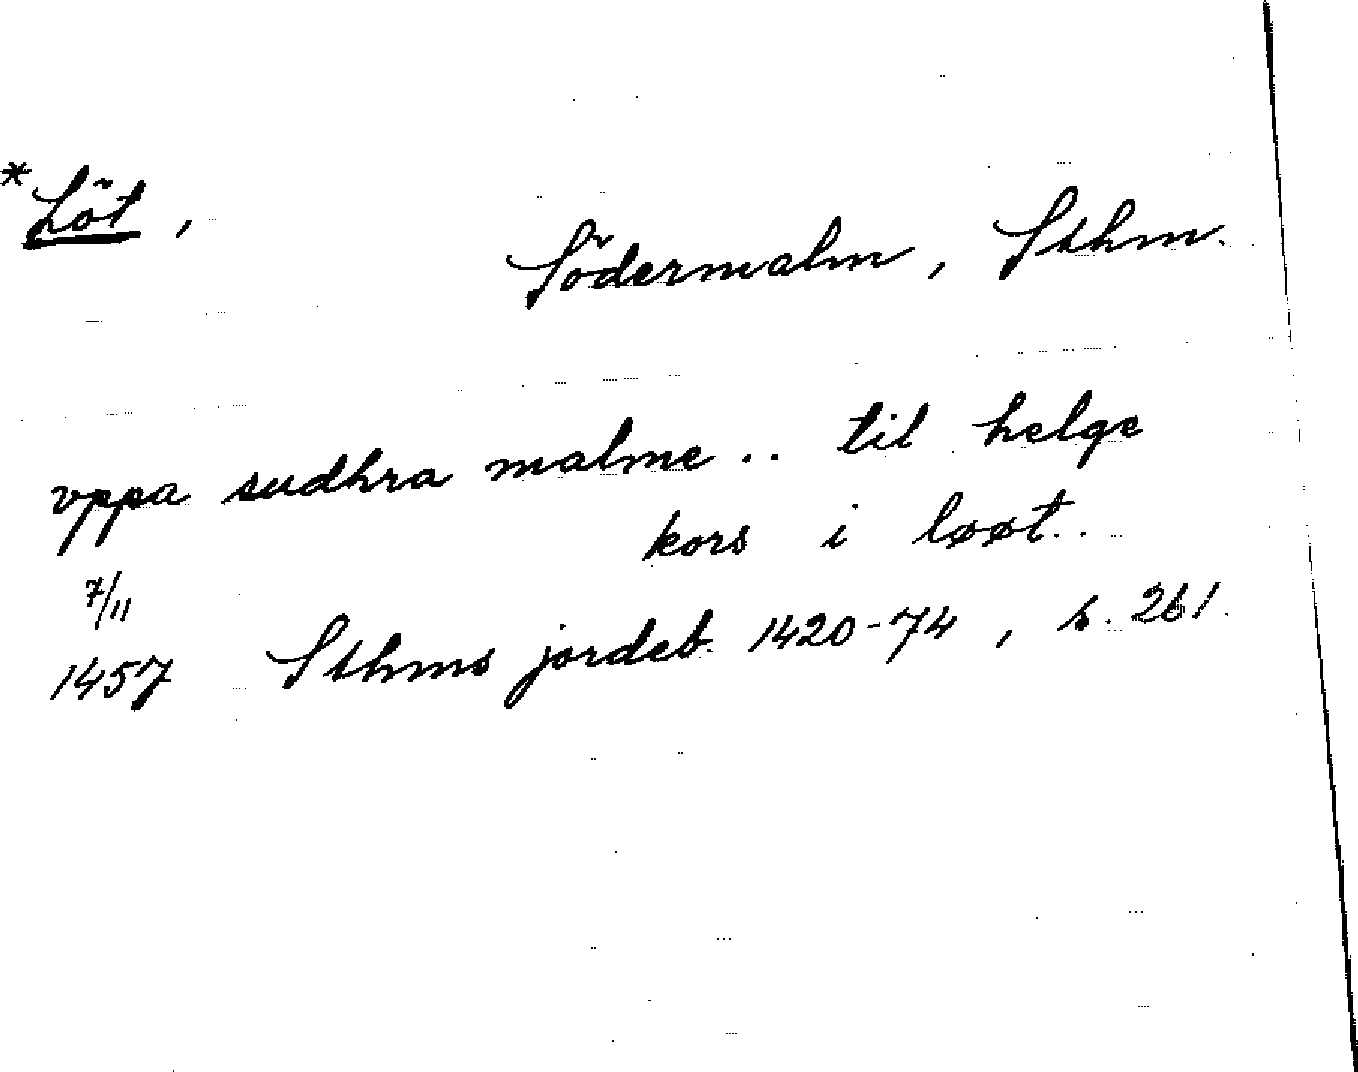 *Löt,
Södermalm, Sthm.
vppa sudhra malme.. til helge
kors i løøt..
7/11
1457 Sthms jordeb. 1420-74, s. 261.